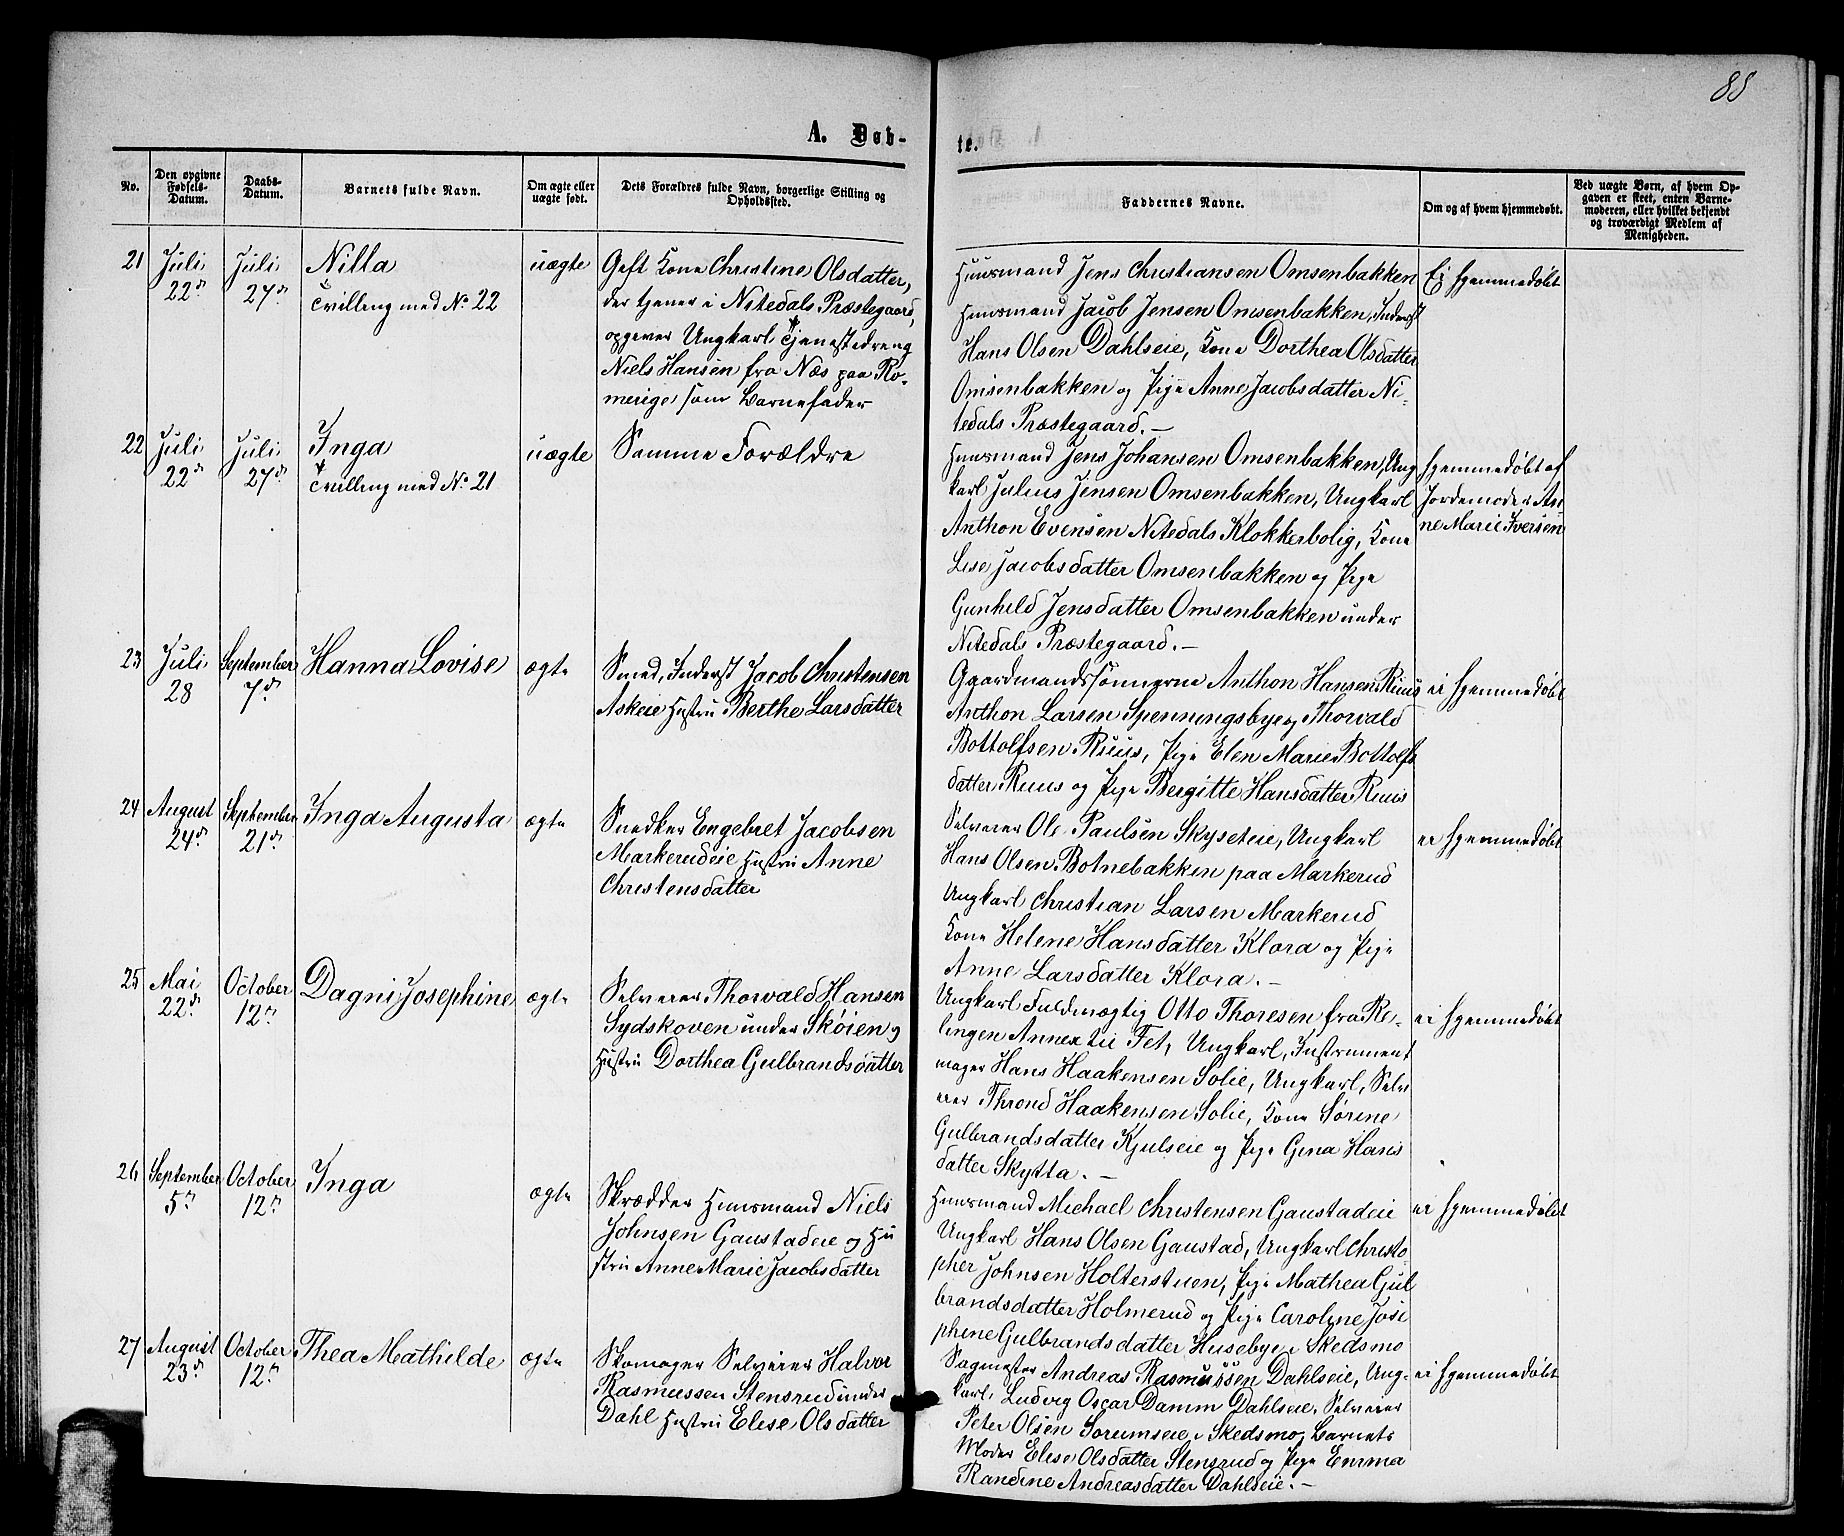 88
A. Døb-
te.
No.
Den opgivne Fødsels-Datum.
Daabs-Datum.
Barnets fulde Navn.
Om ægte eller uægte født.
Dets Forældres fulde Navn, borgerlige Stilling og Opholdssted.
Faddernes Navne.
Om og af hvem hjemmedøbt.
Ved uægte Børn, af hvem Op-
gaven er skeet, enten Barne-
moderen, eller hvilket bekjendt
og troværdigt Medlem af
Menigheden.
21
Juli
22de
Juli
27de
Nilla
Tvilling med No 22
uægte
Gift Kone Christine Olsdatter,
der tjener i Nitedals Præstegaard,
opgiver Ungkarl, Tjenestedreng
Niels Hansen fra Næs paa Ro-
merige som Barnefader
Huusmand Jens Christiansen Omsenbakken
Huusmand Jacob Jensen Omsenbakken, Inderst
Hans Olsen Dahlseie, Kone Dorthea Olsdatter
Omsenbakken og Pige Anne Jacobsdatter Ni-
tedals Præstegaard.-
Ei hjemmedøbt
22
Juli
22de
Juli
27de
Inga
Tvilling med No 21
uægte
Samme Forældre
Huusmand Jens Johansen Omsenbakken, Ung
karl Julius Jensen Omsenbakken, Ungkarl
Anthon Evensen Nitedals Klokkerbolig, Kone
Lise Jacobsdatter Omsenbakken og Pige
Gunhild Jensdatter Omsenbakken under
Nitedals Præstegaard.-
hjemmedøbt af
Jordemoder An
ne Marie Iversen
23
Juli
28
September
7de
Hanna Lovise
ægte
Smed, Inderst Jacob Christensen
Askeie Hustru Berthe Larsdatter
Gaardmandssønnerne Anthon Hansen Ruus
Anthon Larsen Spenningsbye og Thorvald
Bottolfsen Ruus, Pige Elen Marie Bottolfs
datter Ruus og Pige Bergitte Hansdatter Ruus
ei hjemmedøbt
24
August
24de
September
21de
Inga Augusta
ægte
Snedker Engebret Jacobsen
Markerudeie Hustru Anne
Christensdatter
Selveier Ole Paulsen Skyseteie, Ungkarl
Hans Olsen Botnebakken paa Markerud
Ungkarl Christian Larsen Markerud
Kone Helene Hansdatter Klora og Pige
Anne Larsdatter Klora.-
ei hjemmedøbt
25
Mai
22de
October
12te
Dagni Josephine
ægte
Selveier Thorvald Hansen
Sydskoven under Skøien og
Hustru Dorthea Gulbrandsdatter
Ungkarl Fuldmægtig Otto Thoresen fra Re-
lingen Annex til Fet, Ungkarl, Instrument
mager Hans Haakensen Solie, Ungkarl, Selv
eier Thrond Haakensen Solie, Kone Sørine
Gulbrandsdatter Kjulseie og Pige Gina Hans
datter Skytta.-
ei hjemmedøbt
26
September
5te
October
12te
Inga
ægte
Skrædder Huusmand Niels
Johnsen Gaustadeie og Hu
stru Anne Marie Jacobsdatter
Huusmand Michael Christensen Gaustadeie
Ungkarl Hans Olsen Gaustad, Ungkarl Christo
pher Johnsen Holterstuen, Pige Mathea Gul
brandsdatter Holmerud og Pige Caroline Jose
phine Gulbrandsdatter Husebye i Skedsmo
ei hjemmedøbt
27
August
23de
October
12te
Thea Mathilde
ægte
Skomager Selveier Halvor
Rasmussen Stensrud under
Dahl Hustru Elise Olsdatter
Sagmester Andreas Rasmussen Dahlseie, Ung-
karl, Ludvig Oscar Damm Dahlseie, Selveier
Peter Olsen Sorumseie i Skedsmo, Barnets
Moder Elise Olsdatter Stensrud og Pige Emma
Randine Andreasdatter Dahlseie.-
ei hjemmedøbt